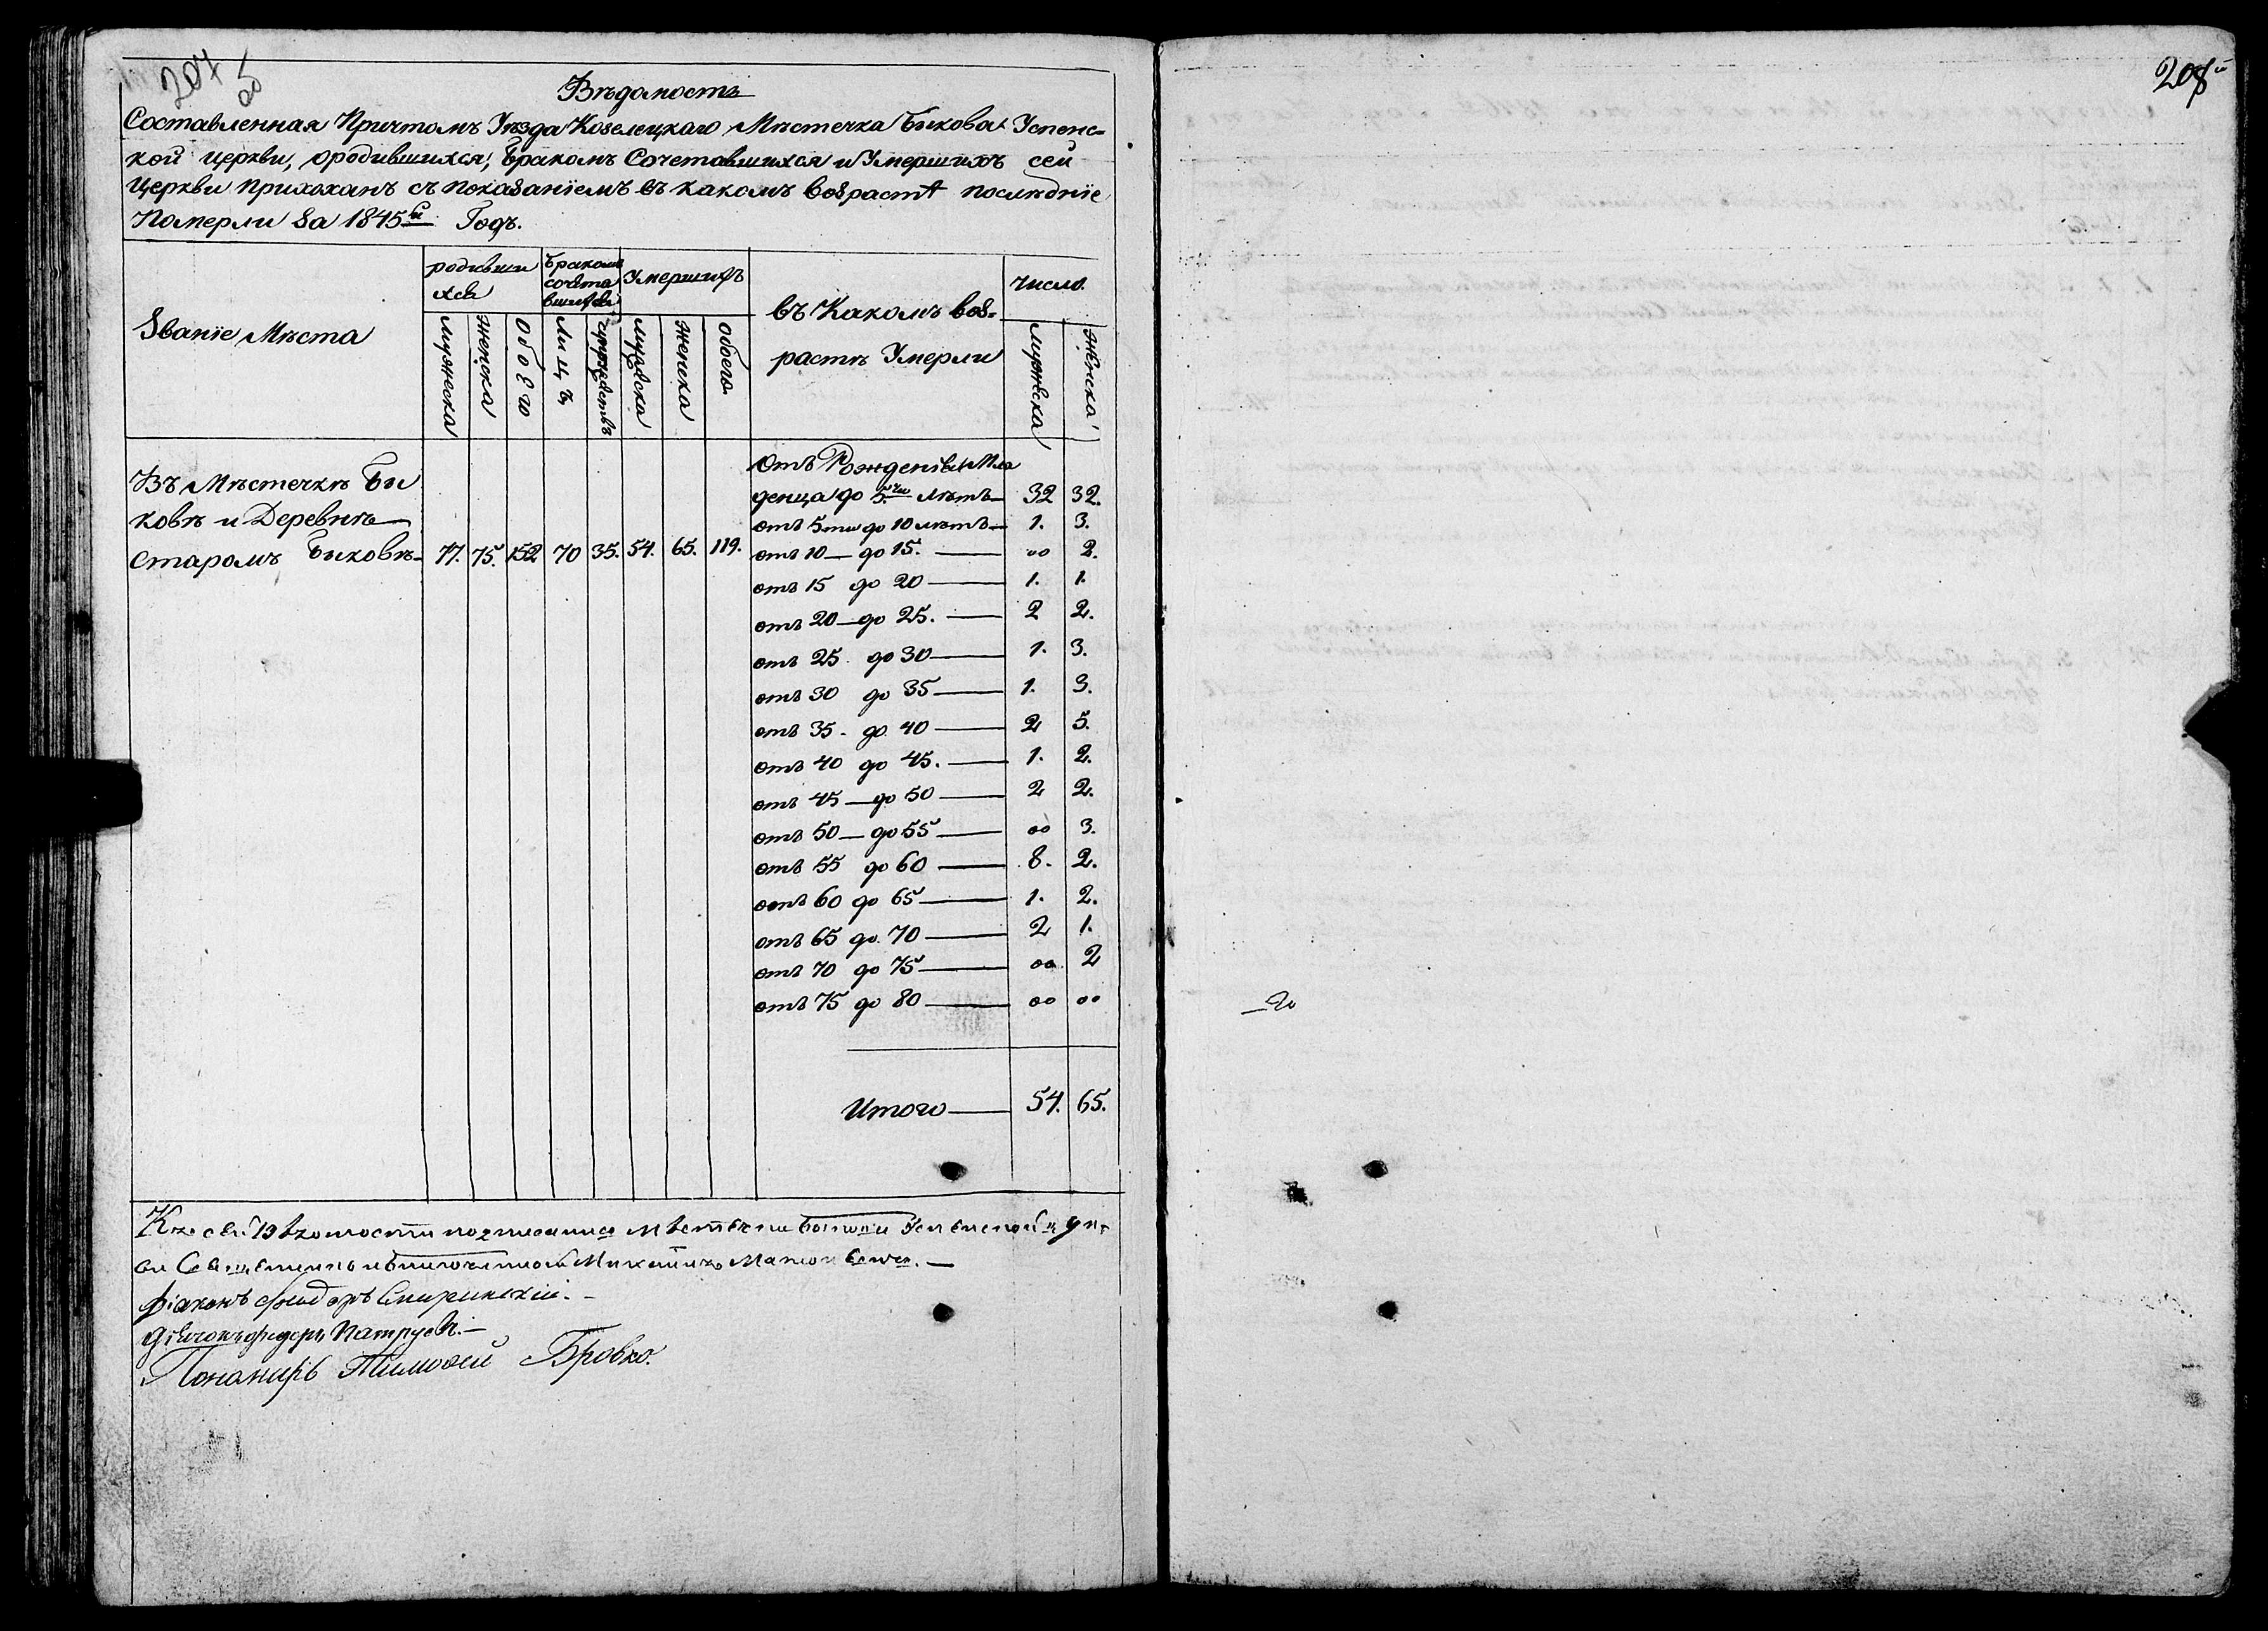 204
Вѣдомость
Составленная Причтомъ Уѣзда Козелецкаго Мѣстечка Быкова Успенс=
кой церкви, ородившихся, Бракомъ Сочетавшихся и Умершихъ сей
Церкви прихожанъ съ показанïемъ въ какомъ возрастѣ послѣднïе
Померли За 1845й Годъ.
Званïе Мѣста
родивши
хся
Бракомъ
сочета
вшихся
Умершихъ
въ Какомъ воз=
растѣ Умерли
число.
мужеска
женска
обоего
лицъ
супружествъ
мужеска
женска
обоего.
мужеска
женска
Въ Мѣстечкѣ Бы
ковѣ и Деревнѣ
Старомъ Быковѣ
77. 75. 152 70 35. 54. 65. 119.
Отъ Рожденïя Мла
денца до 5ти лѣтъ 32 32.
отъ 5ти до 10 лѣтъ 1. 3.
отъ 10 — до 15. — оо 2.
отъ 15 до 20 — 1. 1.
отъ 20 — до 25. — 2 2.
отъ 25 до 30 — 1. 3.
отъ 30 до 35 — 1. 3.
отъ 35 - до 40 — 2 5.
отъ 40 до 45. — 1. 2.
отъ 45 — до 50 — 2 2.
отъ 50 — до 55 — оо 3.
отъ 55 до 60 — 8. 2.
отъ 60 до 65 — 1. 2.
отъ 65 до 70 — 2 1.
отъ 70 до 75 — оо 2
отъ 75 до 80 — оо оо
Итого — 54. 65.
Къ сей Вѣдомости подписались Мѣстечка Успенской
Священникъ
Дïаконъ
Дьячокъ Федоръ
Пономарь Тимофей Бровко.
208